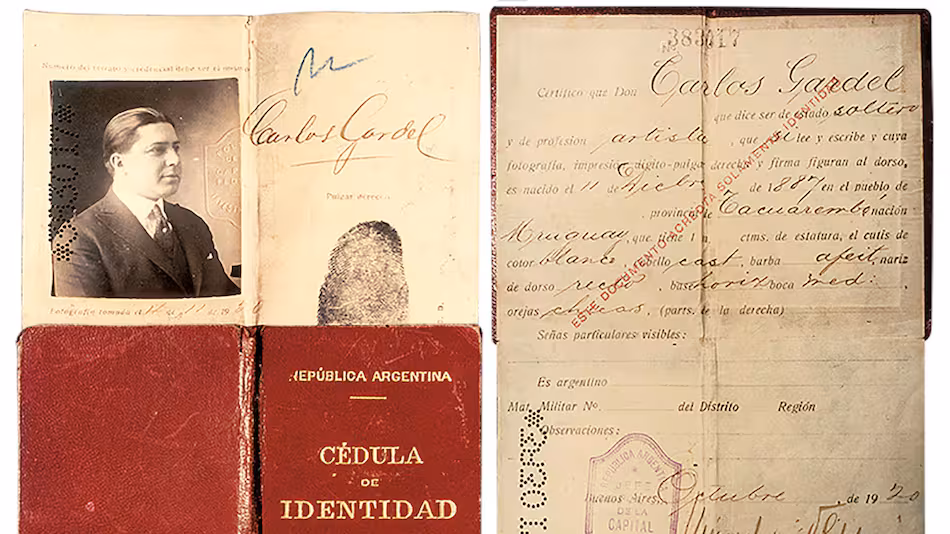 Carlos Gardel
Pulgar derecho
REPÚBLICA ARGENTINA
CÉDULA
DE
IDENTIDAD
Nº 383017
Certifico que Don Carlos Gardel
que dice ser de estado soltero
y de profesión artista, que si lee y escribe y cuya
fotografía, impresión dígito-pulgar derecha y firma figuran al dorso,
es nacido el 11 de Dicbre de 1887 en el pueblo de
, provincia de Tacuarembo nación
Uruguay, que tiene 1 m. ctms. de estatura, el cutis de
color blanco cabello cast, barba afeit, nariz
de dorso rec, base horiz boca med:
orejas chicas, (parts. de la derecha)
Señas particulares visibles:
ESTE DOCUMENTO ACREDITA SOLAMENTE IDENTIDAD
Es argentino
Mat. Militar No. del Distrito Región
Observaciones:
REPÚBLICA ARGENT
JEFE
DE LA
CAPITAL
Buenos Aires, Octubre de 1920